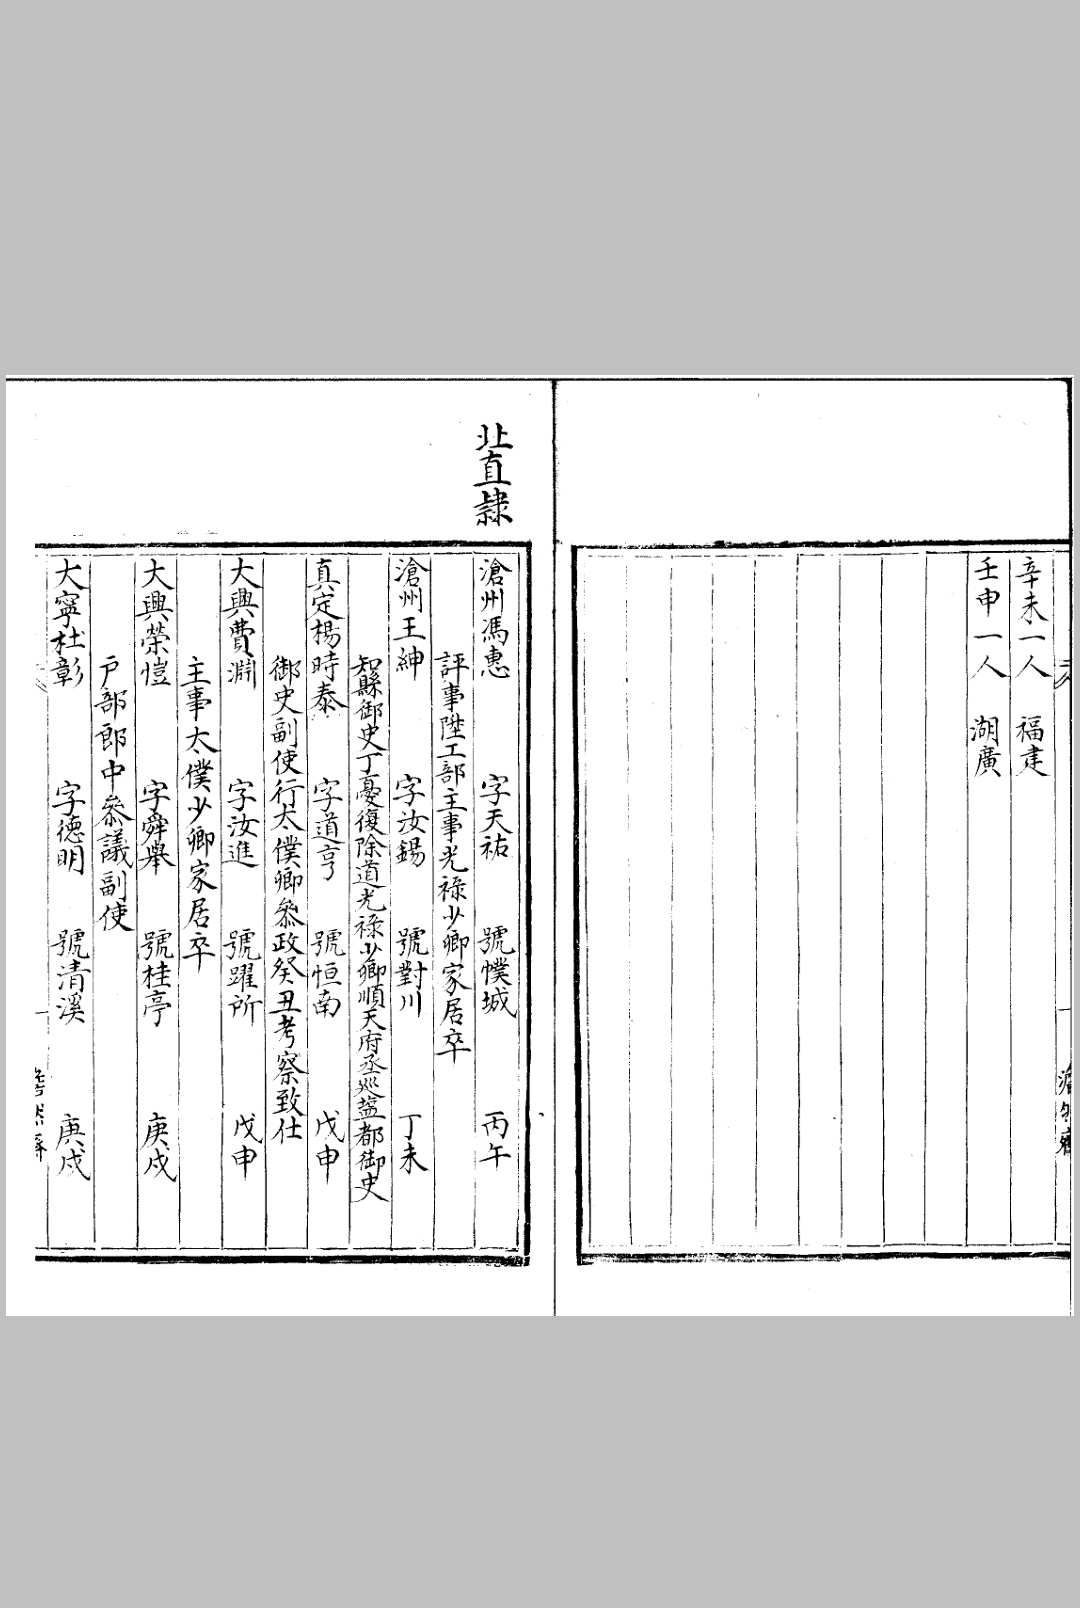 辛未一人 福建
壬申一人 湖廣
北直隸
滄州馮惠 字天祐 號幞城 丙午
評事陞工部主事光祿少卿家居卒
滄州王紳 字汝錫 號對川 丁未
知縣御史丁憂復除道光祿少卿順天府丞巡鹽都御史
真定楊時泰 字道亨 號恒南 戊申
御史副使行太僕卿叅政癸丑考察致仕
大興費淵 字汝進 號躍所 戊申
主事太僕少卿家居卒
大興榮愷 字舜舉 號桂亭 庚戌
戶部郎中叅議副使
大寧杜彰 字德明 號清溪 庚戌